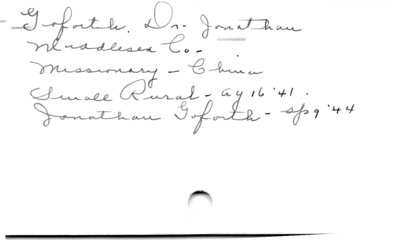 Goforth, Dr. Jonathan
Middlesex Co.
Missionary - China
Small Rural - ag 16 '41.
Jonathan Goforth - sp 9 '44